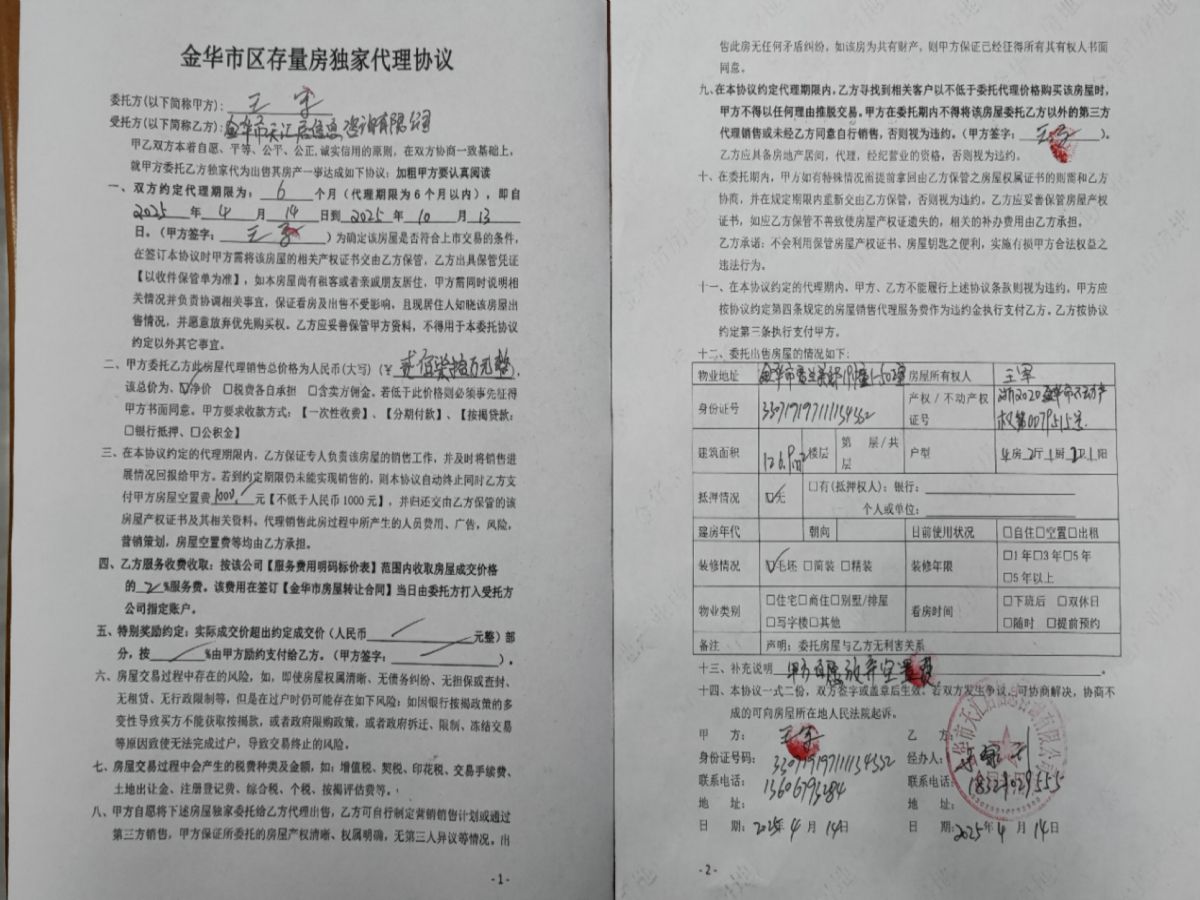 金华市区存量房独家代理协议
委托方(以下简称甲方): 王军
受托方(以下简称乙方): 金华市天汇居信息咨询有限公司
甲乙双方本着自愿、平等、公平、公正,诚实信用的原则，在双方协商一致基础上，
就甲方委托乙方独家代为出售其房产一事达成如下协议: 加粗甲方要认真阅读
一、双方约定代理期限为: 6 个月（代理期限为6个月以内），即自
2025 年 4 月 14 日到 2025 年 10 月 13
日。（甲方签字: 王军 ）为确定该房屋是否符合上市交易的条件，
在签订本协议时甲方需将该房屋的相关产权证书交由乙方保管，乙方出具保管凭证
【以收件保管单为准】，如本房屋尚有租客或者亲戚朋友居住，甲方需同时说明相
关情况并负责协调相关事宜，保证看房及出售不受影响，且现居住人如晓该房屋出
售情况，并愿意放弃优先购买权。乙方应妥善保管甲方资料，不得用于本委托协议
约定以外其它事宜。
二、甲方委托乙方此房屋代理销售总价格为人民币(大写)（¥ 贰佰柒拾万元整 ，
该总价为、☑净价 □税费各自承担 □含卖方佣金。若低于此价格则必须事先征得
甲方书面同意。甲方要求收款方式:【一次性收费】、【分期付款】、【按揭贷款:
□银行抵押、□公积金】
三、在本协议约定的代理期限内，乙方保证专人负责该房屋的销售工作，并及时将销售进
展情况回报给甲方。若到约定期限仍未能实现销售的，则本协议自动终止同时乙方支
付甲方房屋空置费 1000. 元【不低于人民币1000元】，并归还交由乙方保管的该
房屋产权证书及其相关资料。代理销售此房过程中所产生的人员费用、广告，风险，
营销策划，房屋空置费等均由乙方承担。
四、乙方服务收费收取: 按该公司【服务费用明码标价表】范围内收取房屋成交价格
的 2 %服务费。该费用在签订【金华市房屋转让合同】当日由委托方打入受托方
公司指定账户。
五、特别奖励约定: 实际成交价超出约定成交价（人民币 元整）部
分，按 %由甲方励约支付给乙方。（甲方签字: ）。
六、房屋交易过程中存在的风险，如，即使房屋权属清晰、无债务纠纷、无担保或查封、
无租赁、无行政限制等，但是在过户时仍可能存在如下风险: 如因银行按揭政策的多
变性导致买方不能获取按揭款，或者政府限购政策，或者政府拆迁、限制、冻结交易
等原因致使无法完成过户，导致交易终止的风险。
七、房屋交易过程中会产生的税费种类及金额，如: 增值税、契税、印花税、交易手续费、
土地出让金、注册登记费、综合税、个税、按揭评估费等。
八、甲方自愿将下述房屋独家委托给乙方代理出售，乙方可自行制定营销销售计划或通过
第三方销售，甲方保证所委托的房屋产权清晰、权属明确，无第三人异议等情况。出
-1-
售此房无任何矛盾纠纷，如该房为共有财产，则甲方保证已经征得所有共有权人书面
同意。
九、在本协议约定代理期限内，乙方寻找到相关客户以不低于委托代理价格购买该房屋时，
甲方不得以任何理由推脱交易。甲方在委托期内不得将该房屋委托乙方以外的第三方
代理销售或未经乙方同意自行销售，否则视为违约。（甲方签字: 王军 ）。
乙方应具备房地产居间，代理，经纪营业的资格，否则视为违约。
十、在委托期内，甲方如有特殊情况需提前拿回由乙方保管之房屋权属证书的则需和乙方
协商，并在规定期限内重新交由乙方保管，否则视为违约。乙方应妥善保管房屋产权
证书，如应乙方保管不善致使房屋产权证遗失的，相关的补办费用由乙方承担。
乙方承诺: 不会利用保管房屋产权证书、房屋钥匙之便利，实施有损甲方合法权益之
违法行为。
十一、在本协议约定的代理期内，甲方、乙方不能履行上述协议条款则视为违约，甲方应
按协议约定第四条规定的房屋销售代理服务费作为违约金执行支付乙方。乙方按协议
约定第三条执行支付甲方。
十二、委托出售房屋的情况如下:
物业地址 金华市 1-502室 房屋所有权人 王军
身份证号 330719197111154352 产权/不动产权证号 浙2020金华市不动产权第0079515号
建筑面积 126.9m² 楼层 第 层/共 层 户型 4房2厅1厨2卫1阳
抵押情况 ☑无 □有(抵押权人): 银行:
个人或单位:
建房年代 朝向 目前使用状况 □自住□空置□出租
装修情况 ☑毛坯 □简装 □精装 装修年限 □1年□3年□5年
□5年以上
物业类别 □住宅□商住□别墅/排屋 □写字楼□其他 看房时间 □下班后 □双休日
□随时 □提前预约
备注 声明: 委托房屋与乙方无利害关系
十三、补充说明 甲方自愿放弃空置费 。
十四、本协议一式二份，双方签字或盖章后生效。若双方发生争议，可协商解决，协商不
成的可向房屋所在地人民法院起诉。
甲 方: 王军 乙 方:
身份证号码: 330719197111154352 经办人:
联系电话: 13606793284 联系电话: 18329029555
地 址: 地 址:
日 期: 2025年4月14日 日 期: 2025年4月14日
-2-